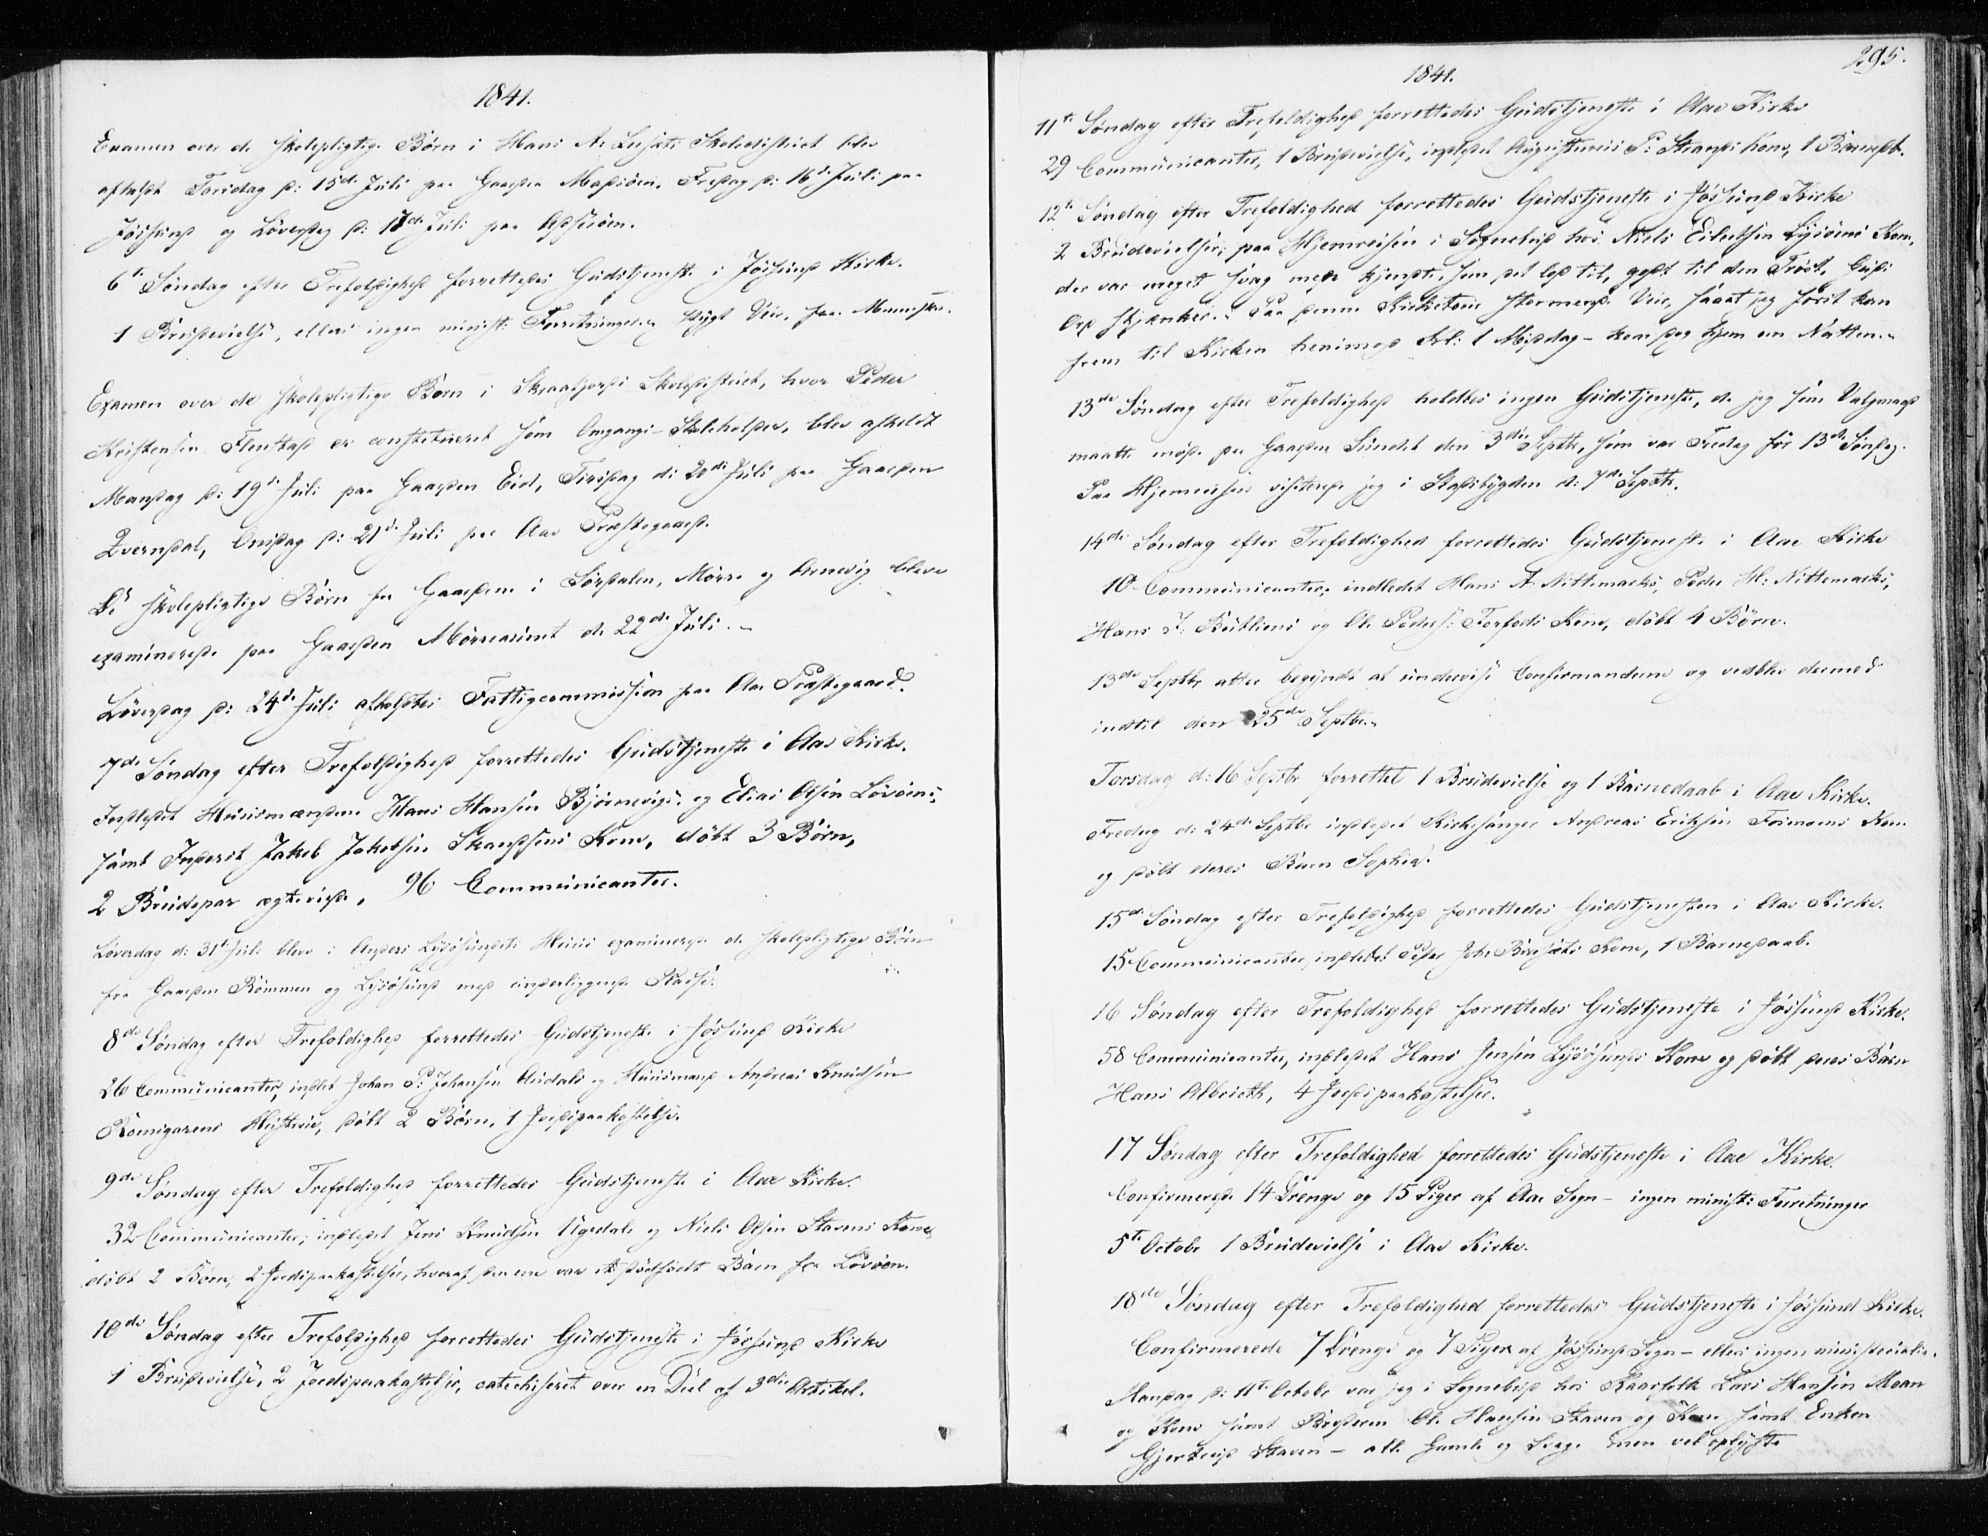 1841.
Examen over de skolepligtige Børn i Hans A. Skoledistrict blev
afholdt Torsdag d: 15de Juli paa Gaarden Madsøen, Fredag d: 16de Juli paa
Jøssund og Løverdag d: 17de Juli paa
6te Søndag efter Trefoldighed forrettedes Gudstjeneste i Jøssund Kirke.
1 Brudevielse, ellers ingen minist: Forretninger. Stygt Veir, faa Mennesker.
Examen over de skolepligtige Børn i Skoledistrict, hvor Peder
Kristensen Flenstad er constitueret som Omgangs-Skoleholder, blev afholdt
Mandag d: 19de Juli paa Gaarden Eid, Tirsdag d: 20de Juli paa Gaarden
Zverndal, Onsdag d: 21de Juli paa Aae Præstegaard.
De skolepligtige Børn fra Gaardene i Sørdalen, Mørre og Arnevig bleve
examinerede paa Gaarden d: 22de Juli. –
Løverdag d: 24de Juli afholdtes Fattigcommission paa Aae Præstegaard.
7de Søndag efter Trefoldighed forrettedes Gudstjeneste i Aae Kirke.
Indledet Huusmændene Hans Hansen Bjørnevigs og Elias Olsen Løvøens,
samt Inderst Jakob Jakobsen Kone, døbt 3 Børn,
2 Brudepar ægteviede, 96 Communicanter.
Løverdag d: 31te Juli bleve i Anders Lysøsundets Huus examinerede de skolepligtige Børn
fra Gaarden Rømmen og Lysøsund med underliggende Pladse.
8de Søndag efter Trefoldighed forrettedes Gudstjeneste i Jøssund Kirke
26 Communicanter, indledt Johan P: Johansen og Huusmand Andreas Knudsen
Hustruer, døbt 2 Børn, 1 Jordspaakastelse.
9de Søndag efter Trefoldighed forrettedes Gudstjeneste i Aae Kirke.
32 Communicanter; indledet Jens Knudsen Ugedals og Niels Olsen Stavens Kone,
døbt 2 Børn, 2 Jordspaakastelser, hvoraf den ene var et dødfødt Barn fra Løvøen.
10de Søndag efter Trefoldighed forrettedes Gudstjeneste i Jøssund Kirke
1 Brudevielse, 2 Jordspaakastelser, catechiseret over en Deel af 3die Artikel.
295.
1841.
11te Søndag efter Trefoldighed forrettedes Gudstjeneste i Aae Kirke
29 Communicanter, 1 Brudevielse, indledet Augustinus P: Kone, 1 Barnedaab.
12te Søndag efter Trefoldighed forrettedes Gudstjeneste i Jøssund Kirke
2 Brudevielser; paa Hjemreisen i Sognebud hos Niels Eilertsen Lysøens Kone,
der var meget svag men hjemsøgte, som det lod til, godt til den Trøst, Guds
Ord skjænker. Paa denne Kirkereise stormende Veir, saaat jeg først kom
frem til Kirken henimod Kl: 1 Middag – kom dog hjem om Natten.
13de Søndag efter Trefoldighed holdtes ingen Gudstjeneste, da jeg som Valgmand
maatte møde paa Gaarden Sundet den 3die Septbr, som var Fredag før 13de Søndag.
Paa Hjemreisen visiterede jeg i Stadsbygden d: 7de Septbr.
14de Søndag efter Trefoldighed forrettedes Gudstjeneste i Aae Kirke
10 Communicanter; indledet Hans A. Nittemarks, Peder H: Nittemarks,
Hans J: og Ole Peders: Kone, døbt 4 Børn.
13de Septbr atter begyndt at undervise Confirmanderne og vedblev dermed
indtil den 25de Septbr.
Torsdag d: 16 Septbr forrettet 1 Brudevielse og 1 Barnedaab i Aae Kirke.
Fredag d: 24de Septbr indledet Kirkesanger Andreas Eriksen Kone
og døbt deres Barn Sophia.
15de Søndag efter Trefoldighed forrettedes Gudstjenesten i Aae Kirke.
15 Communicanter, indledet Peder Joh: Kone, 1 Barnedaab.
16 Søndag efter Trefoldighed forrettedes Gudstjeneste i Jøssund Kirke.
58 Communicanter, indledet Hans Jensen Lysøsunds Kone og døbt deres Barn
Hans Albrieth, 4 Jordspaakastelser.
17 Søndag efter Trefoldighed forrettedes Gudstjeneste i Aae Kirke.
Confirmerede 14 Drenge og 15 Piger af Aae Sogn – ingen minist: Forretninger
5te Octobr 1 Brudevielse i Aae Kirke.
18de Søndag efter Trefoldighed forrettedes Gudstjeneste i Jøssund Kirke.
Confirmerede 7 Drenge og 7 Piger af Jøssund Sogn – ellers ingen ministerialia.
Mandag d: 11te Octobr var jeg i Sognebud hos Kaarfolk Lars Hansen Moan
og Kone samt Ole Hansen Staven og Kone samt Enken
Gjertrud Staven – alle gamle og svage men vel oplyste